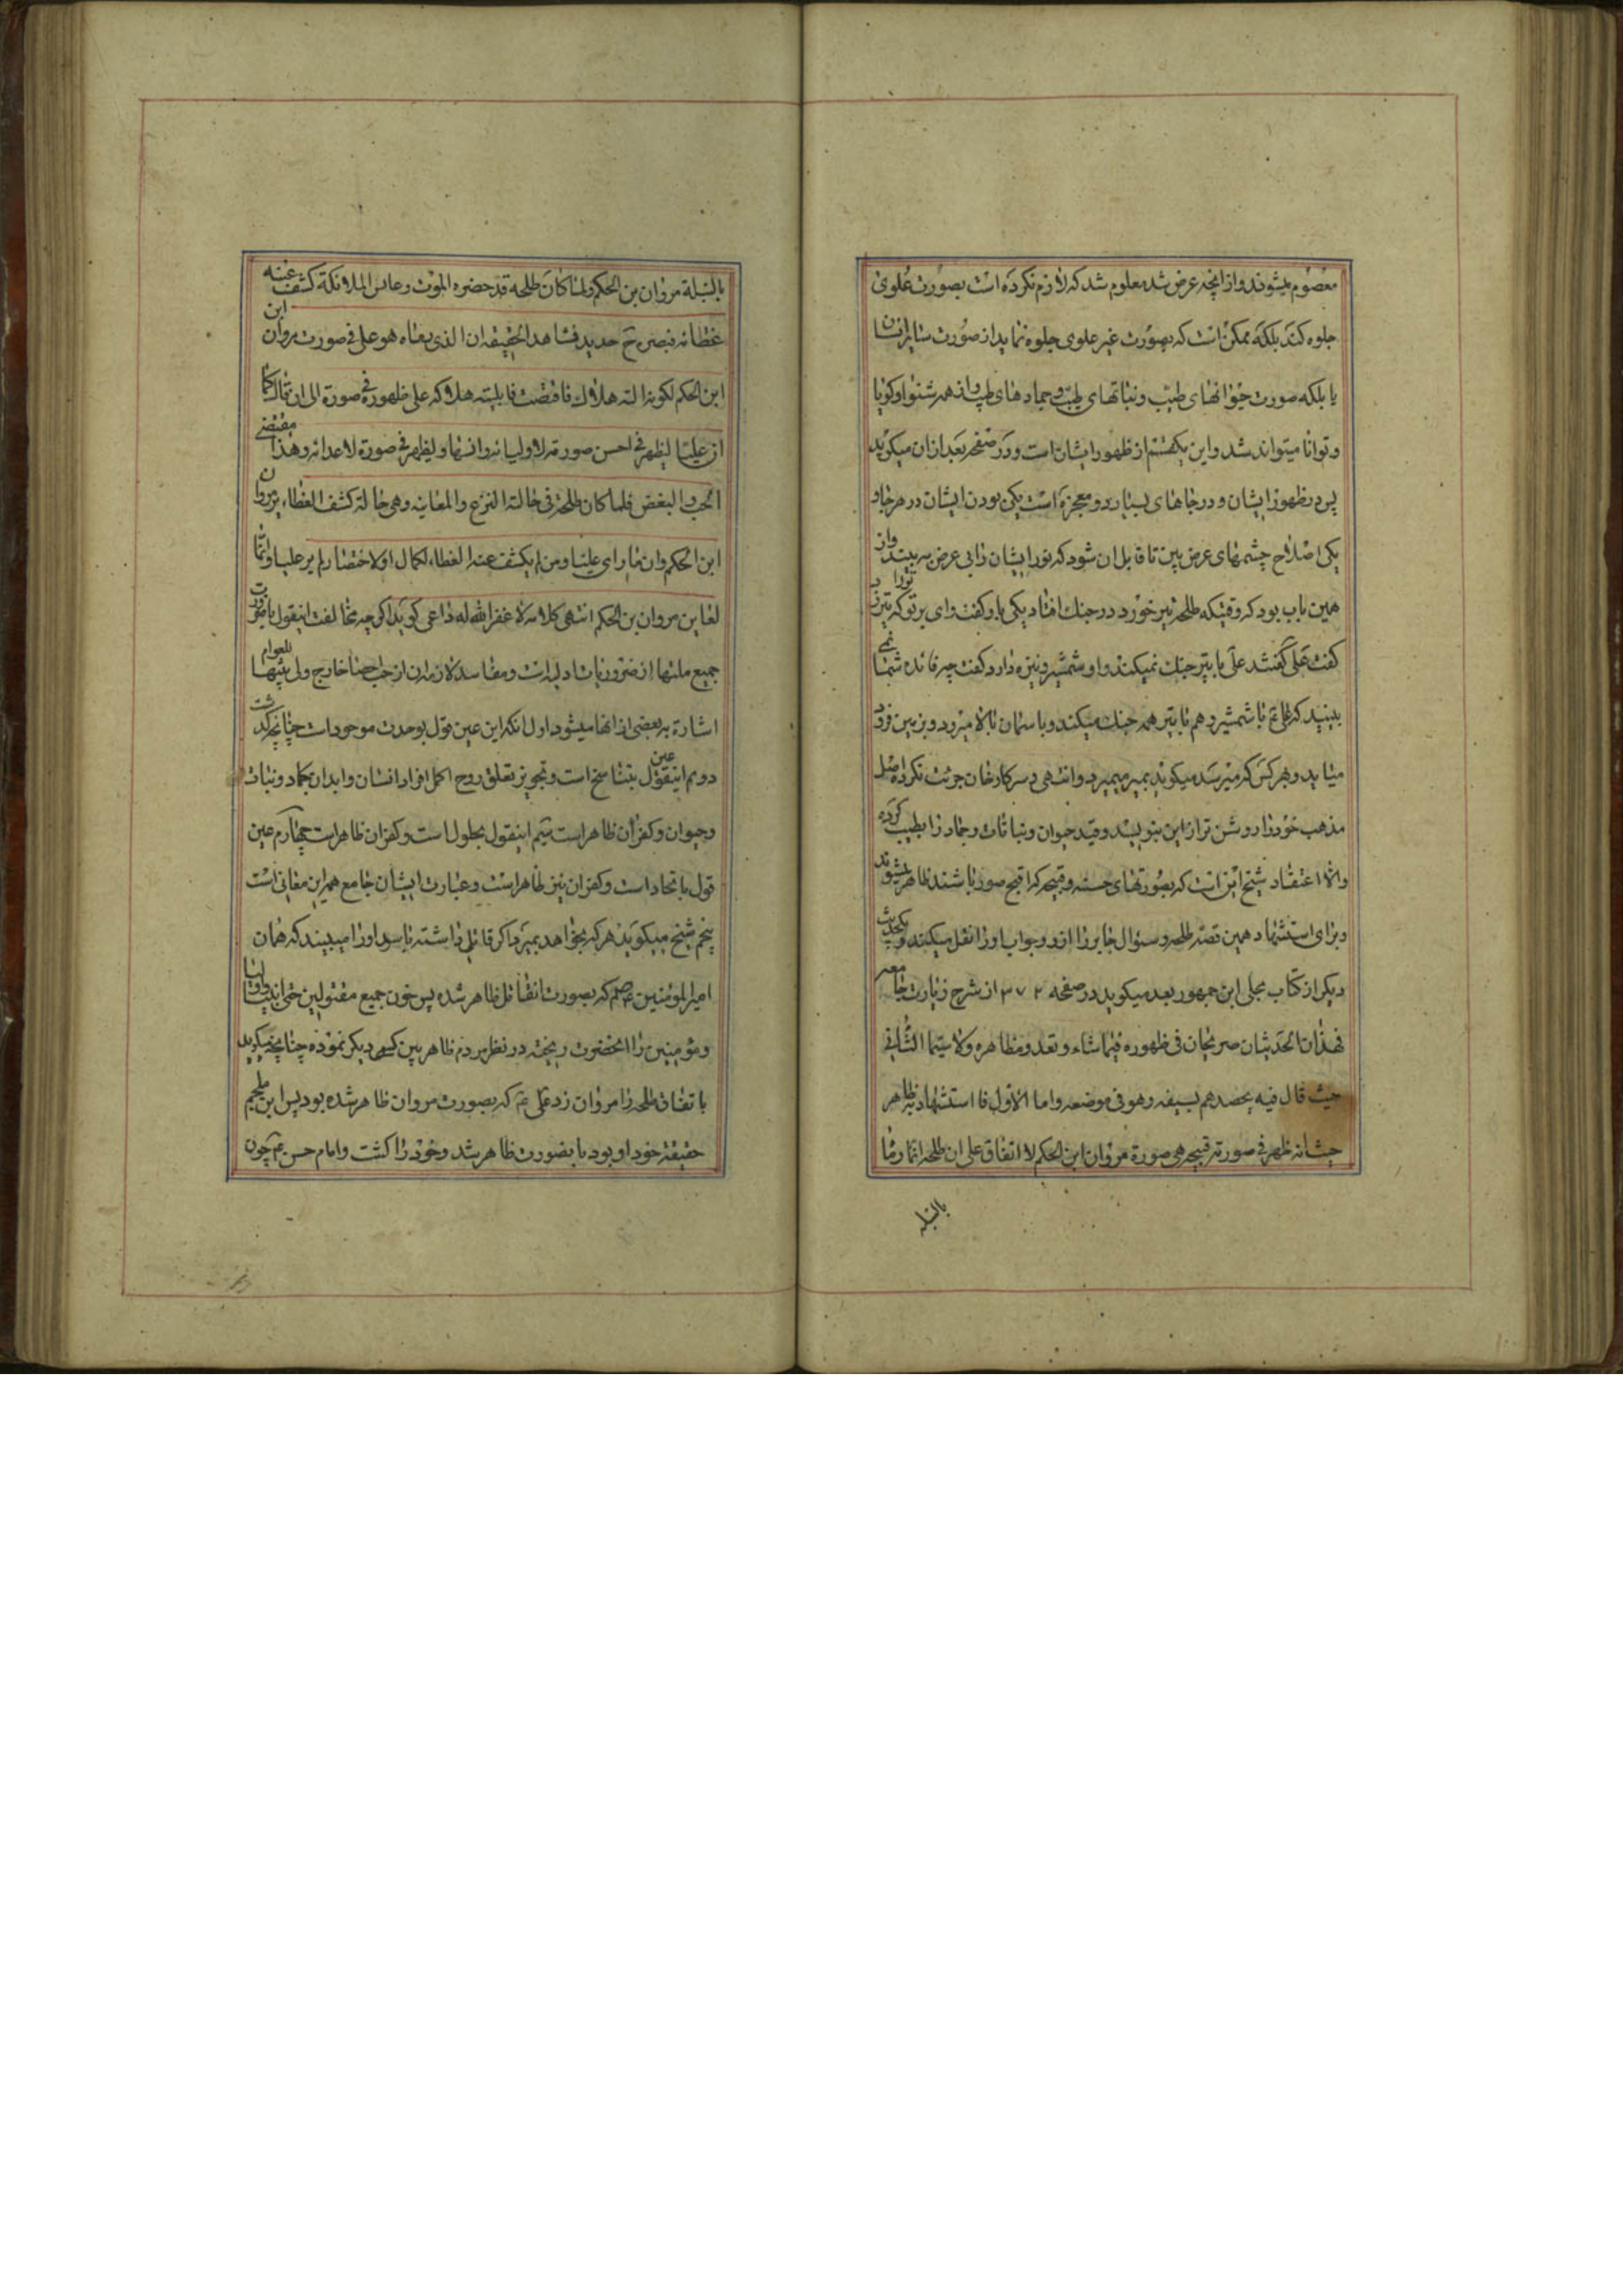 معصوم میشوند و از آنچه عرض شد معلوم شد که لازم نکرده است بصورت علوی
جلوه کند بلکه ممکن است که بصورت غیر علوی جلوه نماید از صورت سایر انسان
یا بلکه صورت حیوانهای طیّب و نباتهای طیّب و جمادهای طیب و از همه شنوا و گویا
و توانا میتواند شد و این یکقسم از ظهور ایشان است و در صفحه بعد از آن میگوید
پس در ظهور ایشان و در جاهای بسیار دو معجزه است یکی بودن ایشان در هر جا و
یکی اصلاح چشمهای عرض بین تا قابل آن شود که نور ایشان را بی عرض به بیند و از
همین باب بود که وقتیکه طلحه تیر خورد در جنک افتاد یکی باو کفت وای بر تو که تیر زد ترا
کفت علی کفتند علی با تیر جنک نمیکند و او شمشیر و نیزه دارد کفت چه فائده شما نمی
بینید که علی ع با شمشیر و هم با تیر همه جنک میکند و باسمان بالا میرود و بزمین فرود
میاید و بهر کس که میرسد میکوید بمیر میمیرد و انتهی و سرکار خان جرئت نکرده اصل
مذهب خود را روشن تر از این بنویسد و قید حیوان و نباتات و جماد را بطیب کرده
و الا اعتقاد شیخ این است که بصورتهای حسنه و قبیحه که اقبح صور باشند ظاهر میشوند
و برای استشهاد همین قصه طلحه و سئوال جابر را از و و جواب او را نقل میکند و بحدیث
دیکر از کتاب مجلی ابن جمهور بعد میکوید در صفحه ۳۷۲ از شرح زیارت جامعه
فهذان الحدیثان صریحان فی ظهوره فیما شاء و تعدد مظاهره ولا سیّما الثّانی
حیث قال فیه یحصدهم بسیفه وهو فی موضعه واما الاوّل فا استشهاد به ظاهر
حیث انه ظهر فی صورته قبیحه هی صورة مروان ابن الحکم لا اتفاق علی ان طلحه انما رماه
بالنبلة
بالنبلة مروان بن الحکم ولما کان طلحه قد حضره الموت وعاین الملائکة کشف عنه
غطائه فبصره ح حدید فشاهد الحقیقه ان الذی رماه هو علی فی صورت مروان ابن
ابن الحکم لکونه اله هلاک فاقتضت قابلیته هلاکه علی ظهوره فی صورة الی ان قال کما
ان علیّا لیظهر فی احسن صورته لاولیائه وانسها ولیظهر فی صورة لاعدائه وهذا مقتضی
الحب والبغض فلما کان طلحة فی حالة النزع والمعاینه وهی حالة کشف الغطاء یر مروان
ابن الحکم وان ما رای علیّا ومن لم یکشف عنه الغطاء لکمال او لاختصار لم یر علیا وانّما
لعاین مروان بن الحکم انتهی کلامه لا غفر الله له داعی کوید اکر چه مخالفت اینقول با ضرورت
جمیع ملتها از ضروریات اولیه است و مفاسد لازمه ان از حب احصا خارج ولی تنبیها للعوام
اشارة به بعضی از انها میشود اول آنکه این عین قول بوحدت موجودات چنانچه کذشت
دویم اینقول عین تناسخ است و تجویز تعلق روح اکمل افراد انسان و ابدان بجماد و نبات
و حیوان و کفر آن ظاهر است سیّم اینقول بحلول است و کفر ان ظاهر است چهارم عین
قول باتحاد است و کفر ان نیز ظاهر است و عبارت ایشان جامع همه این معانی است
پنجم شیخ میکوید هر که بخواهد بمیرد اکر قاتل داشته باسد او را میبیند که همان
امیرالمؤمنین ع هم که بصورت انقاتل ظاهر شده پس خون جمیع مقتولین حتی انبیا و اولیا
و مؤمنین را انحضرت ریخته در نظر مردم ظاهر بین کسی دیکر نموده چنانچه میکوید
باتفاق طلحه را مروان زد علی ع که بصورت مروان ظاهر شده بود پس ابن ملجم
حقیقة خود او بود باینصورت ظاهر شد و خود را کشت و امام حسن ع چون